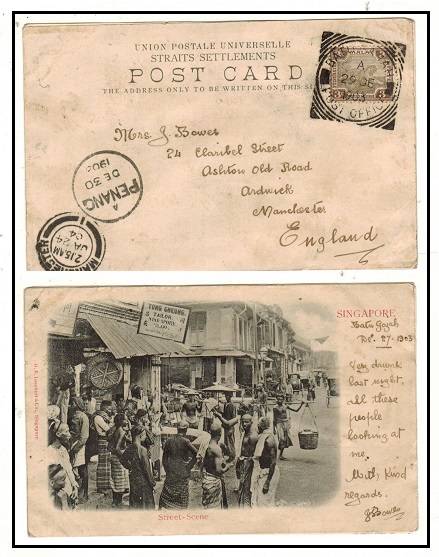 UNION POSTALE UNIVERSELLE
STRAITS SETTLEMENTS
POST CARD
THE ADDRESS ONLY TO BE WRITTEN ON THIS
A
29 DE
1903
POST OFFICE
Mrs. J. Bowes
24 Claribel Street
Ashton Old Road
Ardwick
Manchester
England
PENANG
A
DE 30
1903
MANCHESTER
2.15AM
JA 24
04
SINGAPORE
Batu Gajah
De. 27-1903
Very drunk
last night.
All these
people
looking at
me.
With Kind
regards.
JBowes
TONG CHEONG.
TAILOR
G.R. Lambert & Co., Singapore
Street-Scene